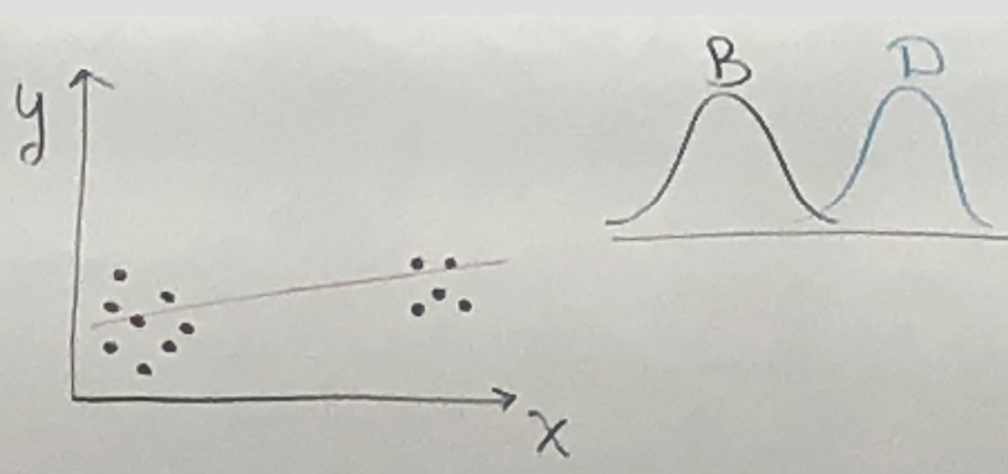 y
x
B
D